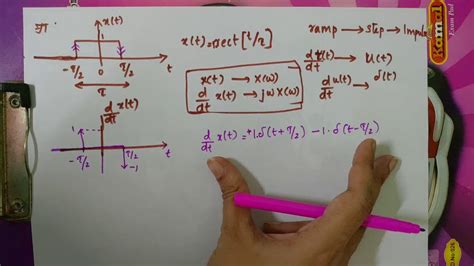 x(t)
1
-τ/2 0 τ/2 t
τ
x(t)=rect[t/τ]
ramp → step → Impulse
d/dt r(t) → u(t)
d/dt u(t) → δ(t)
x(t) → X(ω)
d/dt x(t) → jωX(ω)
d/dt x(t)
1
-τ/2 τ/2 t
-1
d/dt x(t) = +1.δ(t+τ/2) -1.δ(t-τ/2)
Komal
Exam Pad